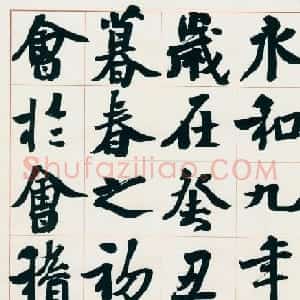 永和九年
歲在癸丑
暮春之初
會於會稽
Shufaziliao.COM